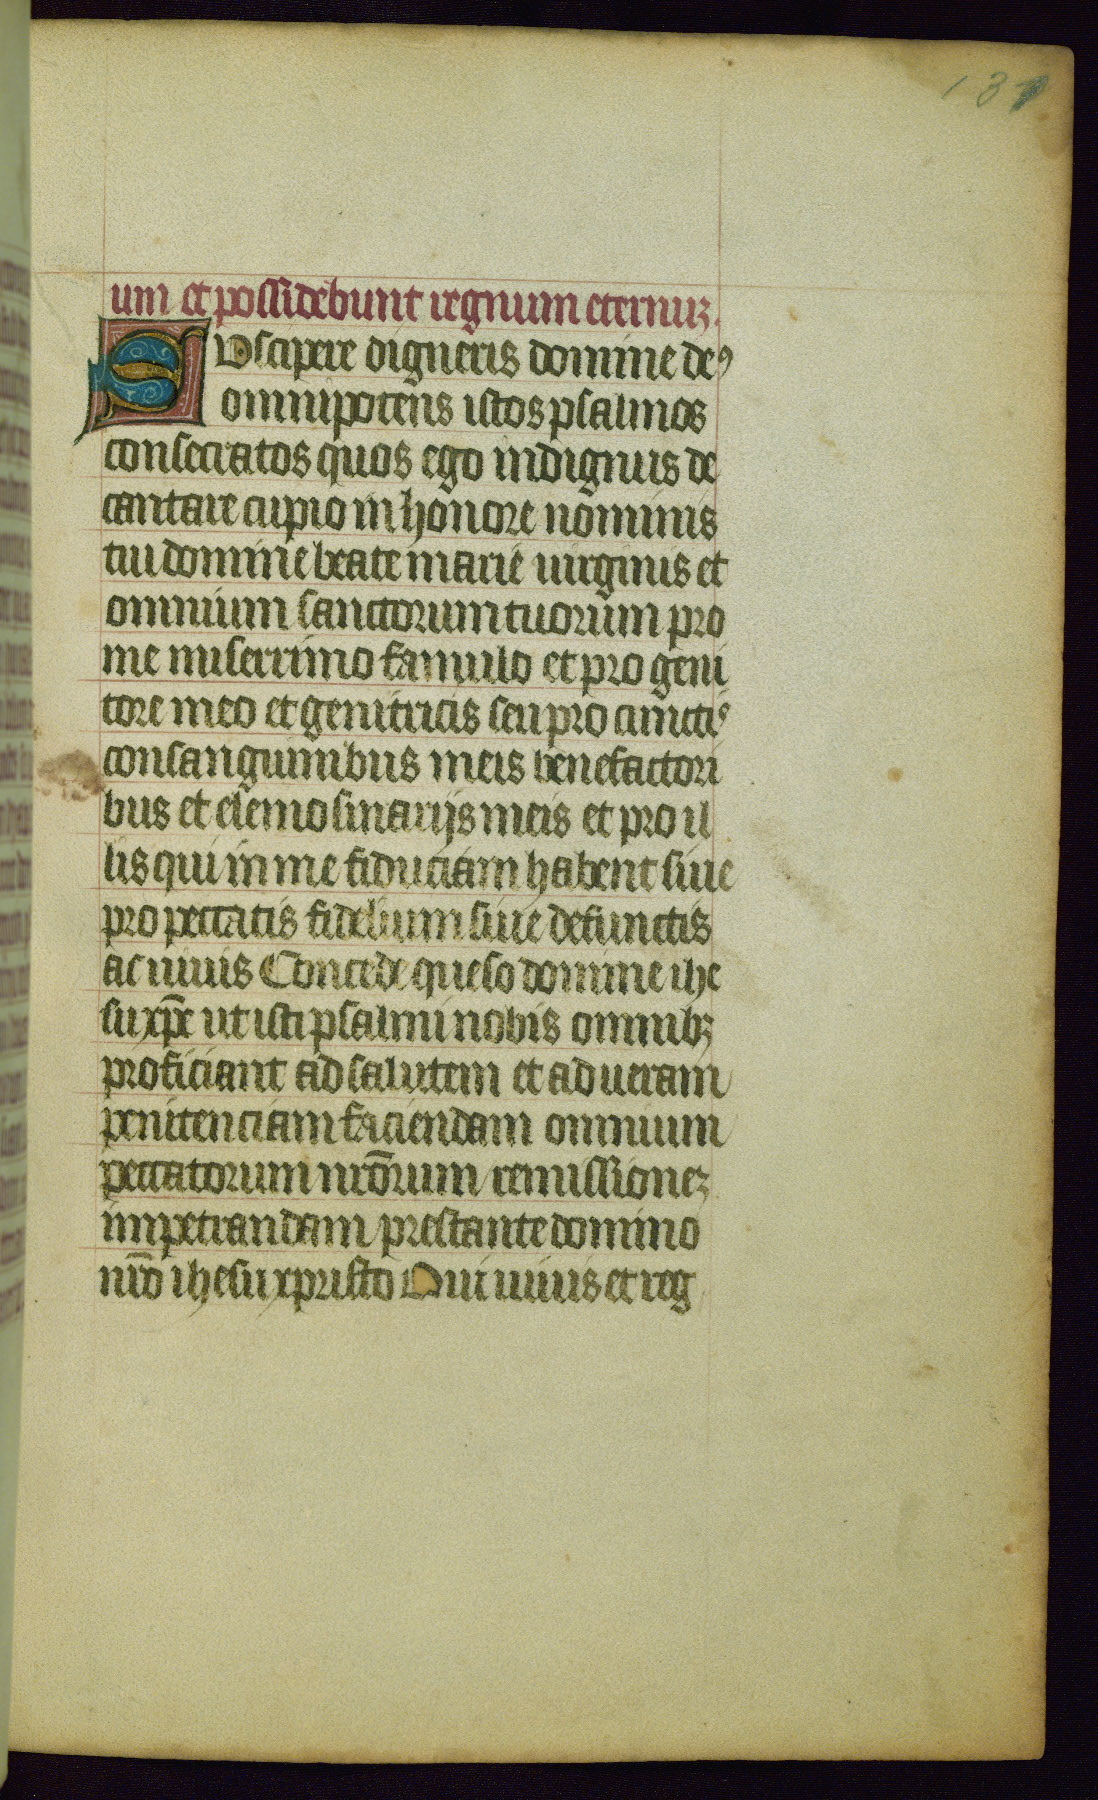 137
um et possidebunt regnum eternuꝫ.
Suscipere digneris domine deꝰ
omnipotens istos psalmos
consecratos quos ego indignus de
cantare cupio in honore nominis
tui domine beate marie uirginis et
omnium sanctorum tuorum pro
me miserrimo famulo et pro geni
tore meo et genitricis seu pro cunctis
consanguinibus meis benefactori
bus et elemosinarijs meis et pro il
lis qui in me fiduciam habent siue
pro peccatis fidelium siue defunctis
ac uiuis Concede queso domine ihe
su xp̄e ut isti psalmi nobis omnibꝫ
proficiant ad salutem et ad ueram
penitenciam faciendam omnium
peccatorum nr̄orum remissioneꝫ
impetrandam prestante domino
nr̄o ihesu xpristo Qui uiuis et reg